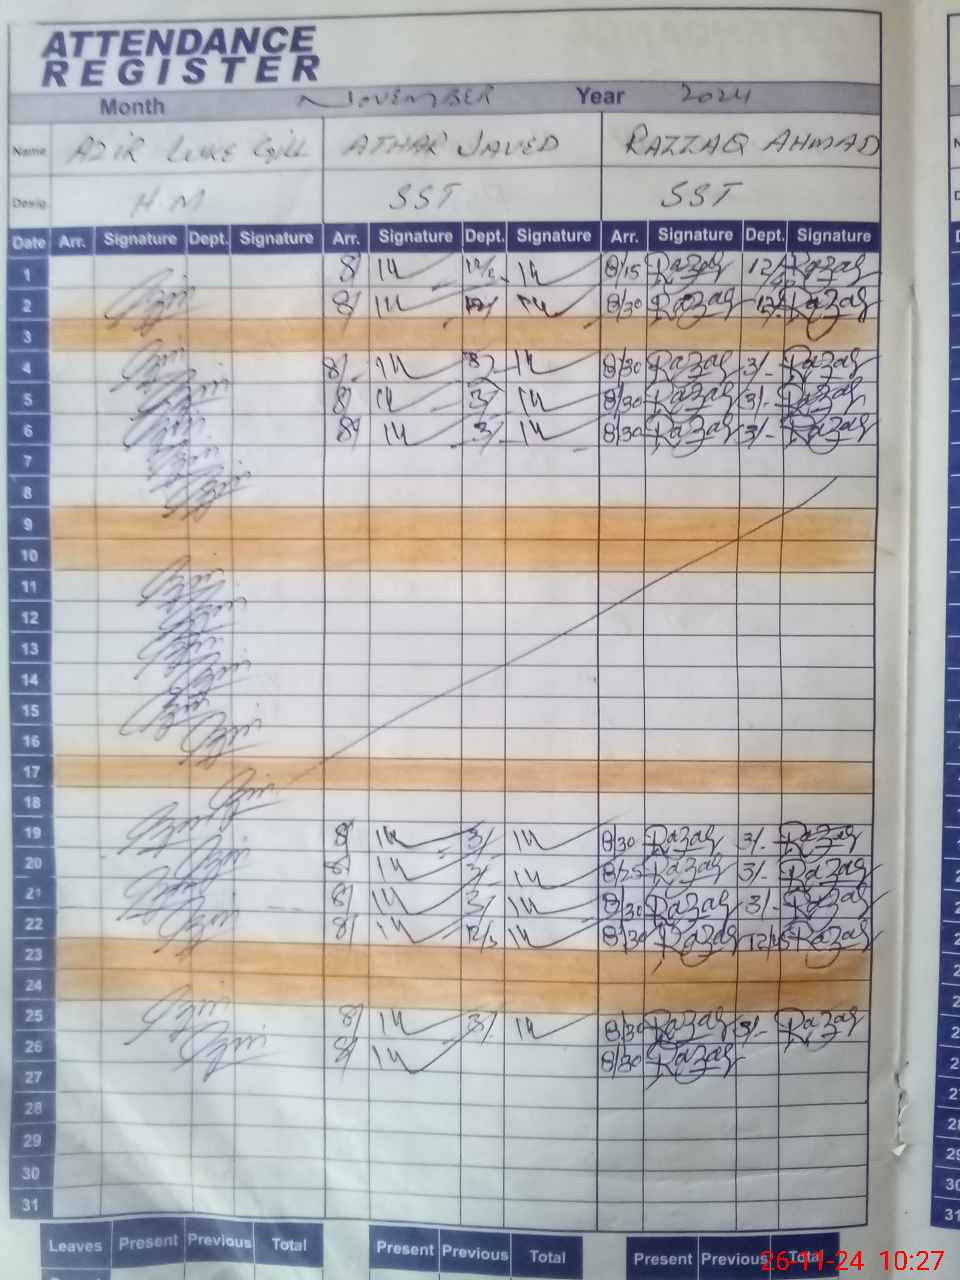 ATTENDANCE
REGISTER
Month NOVEMBER Year 2024
Name AZIR LUKE GILL ATHAR JAVED RAZZAQ AHMAD
Desig. H M SST SST
Date Arr. Signature Dept. Signature Arr. Signature Dept. Signature Arr. Signature Dept. Signature
1 8/ 8/15 Razaq Razaq
2 8/ 8/30 Razaq Razaq
3
4 8/ 8/30 Razaq 3/- Razaq
5 8/ 3/ 8/30 Razaq 3/- Razaq
6 8/ 3/ 8/30 Razaq 3/- Razaq
7
8
9
10
11
12
13
14
15
16
17
18
19 8/ 3/ 8/30 Razaq 3/- Razaq
20 8/ 3/ 8/25 Razaq 3/- Razaq
21 8/ 3/ 8/30 Razaq 3/- Razaq
22 8/ 8/30 Razaq 12/45 Razaq
23
24
25 8/ 3/ 8/30 Razaq 3/- Razaq
26 8/ 8/30 Razaq
27
28
29
30
31
Leaves Present Previous Total Present Previous Total Present Previous Total
26-11-24 10:27